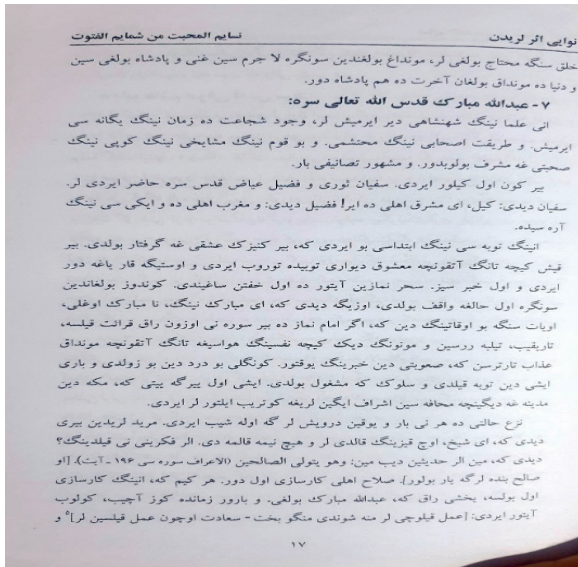 نوایی اثر لریدن
نسایم المحبت من شمایم الفتوت
خلق سنگه محتاج بولغی لر، مونداغ بولغندین سونگره لا جرم سین غنی و پادشاه بولغی سین
و دنیا ده مونداق بولغان آخرت ده هم پادشاه دور.
۷ - عبدالله مبارک قدس الله تعالی سره:
انی علما نینگ شهنشاهی دیر ایرمیش لر، وجود شجاعت ده زمان نینگ یگانه سی
ایرمیش. و طریقت اصحابی نینگ محتشمی. و بو قوم نینگ مشایخی نینگ کوپی نینگ
صحبتی غه مشرف بولوبدور. و مشهور تصانیفی بار.
بیر کون اول کیلور ایردی. سفیان ثوری و فضیل عیاض قدس سره حاضر ایردی لر.
سفیان دیدی: کیل، ای مشرق اهلی ده ایر! فضیل دیدی: و مغرب اهلی ده و ایکی سی نینگ
آره سیده.
انینگ توبه سی نینگ ابتداسی بو ایردی که، بیر کنیزک عشقی غه گرفتار بولدی. بیر
قیش کیچه تانگ آتقونچه معشوق دیواری توبیده توروب ایردی و اوستیگه قار یاغه دور
ایردی و اول خبر سیز. سحر نمازین آیتور ده اول خفتن ساغیندی. کوندوز بولغاندین
سونگره اول حالغه واقف بولدی، اوزیگه دیدی که، ای مبارک نینگ، نا مبارک اوغلی،
اویات سنگه بو اوقاتینگ دین که، اگر امام نماز ده بیر سوره نی اوزون راق قرائت قیلسه،
تاریقیب، تیلبه ررسین و مونونگ دیک کیچه نفسینگ هواسیغه تانگ آتقونچه مونداق
عذاب تارترسن که، صعوبتی دین خبرینگ یوقتور. کونگلی بو درد دین بو زولدی و باری
ایشی دین توبه قیلدی و سلوک که مشغول بولدی. ایشی اول ییرگه ییتی که، مکه دین
مدینه غه دیگینچه محافه سین اشراف ایگین لریغه کوتریب ایلتور لر ایردی.
نزع حالتی ده هر نی بار و یوقین درویش لر گه اوله شیب ایردی. مرید لریدین بیری
دیدی که، ای شیخ، اوچ قیزینگ قالدی لر و هیچ نیمه قالمه دی. الر فکرینی نی قیلدینگ؟
دیدی که، مین الر حدیثین دیب مین: وهو یتولی الصالحین (الاعراف سوره سی ۱۹۶ - آیت). [او
صالح بنده لرگه یار بولور]. صلاح اهلی کارسازی اول دور. هر کیم که، انینگ کارسازی
اول بولسه، یخشی راق که، عبدالله مبارک بولغی. و بارور زمانده کوز آچیب، کولوب
آیتور ایردی: [عمل قیلوچی لر منه شوندی منگو بخت - سعادت اوچون عمل قیلسین لر]⁵ و
۱۷